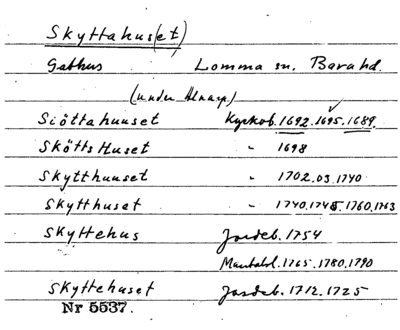 Skyttahus(et)
Gathus Lomma sn. Bara hd.
(under Alnarp)
Siöttahuuset Kyrkob. 1692. 1695. 1689.
SköttsHuset " 1698
Skytthuuset " 1702. 03. 1740
Skytthuset " 1740. 1745. 1760. 1763
Skyttehus Jordeb. 1754
Mantalsl. 1765. 1780. 1790
Skyttehuset Jordeb. 1712. 1725
Nr 5537.